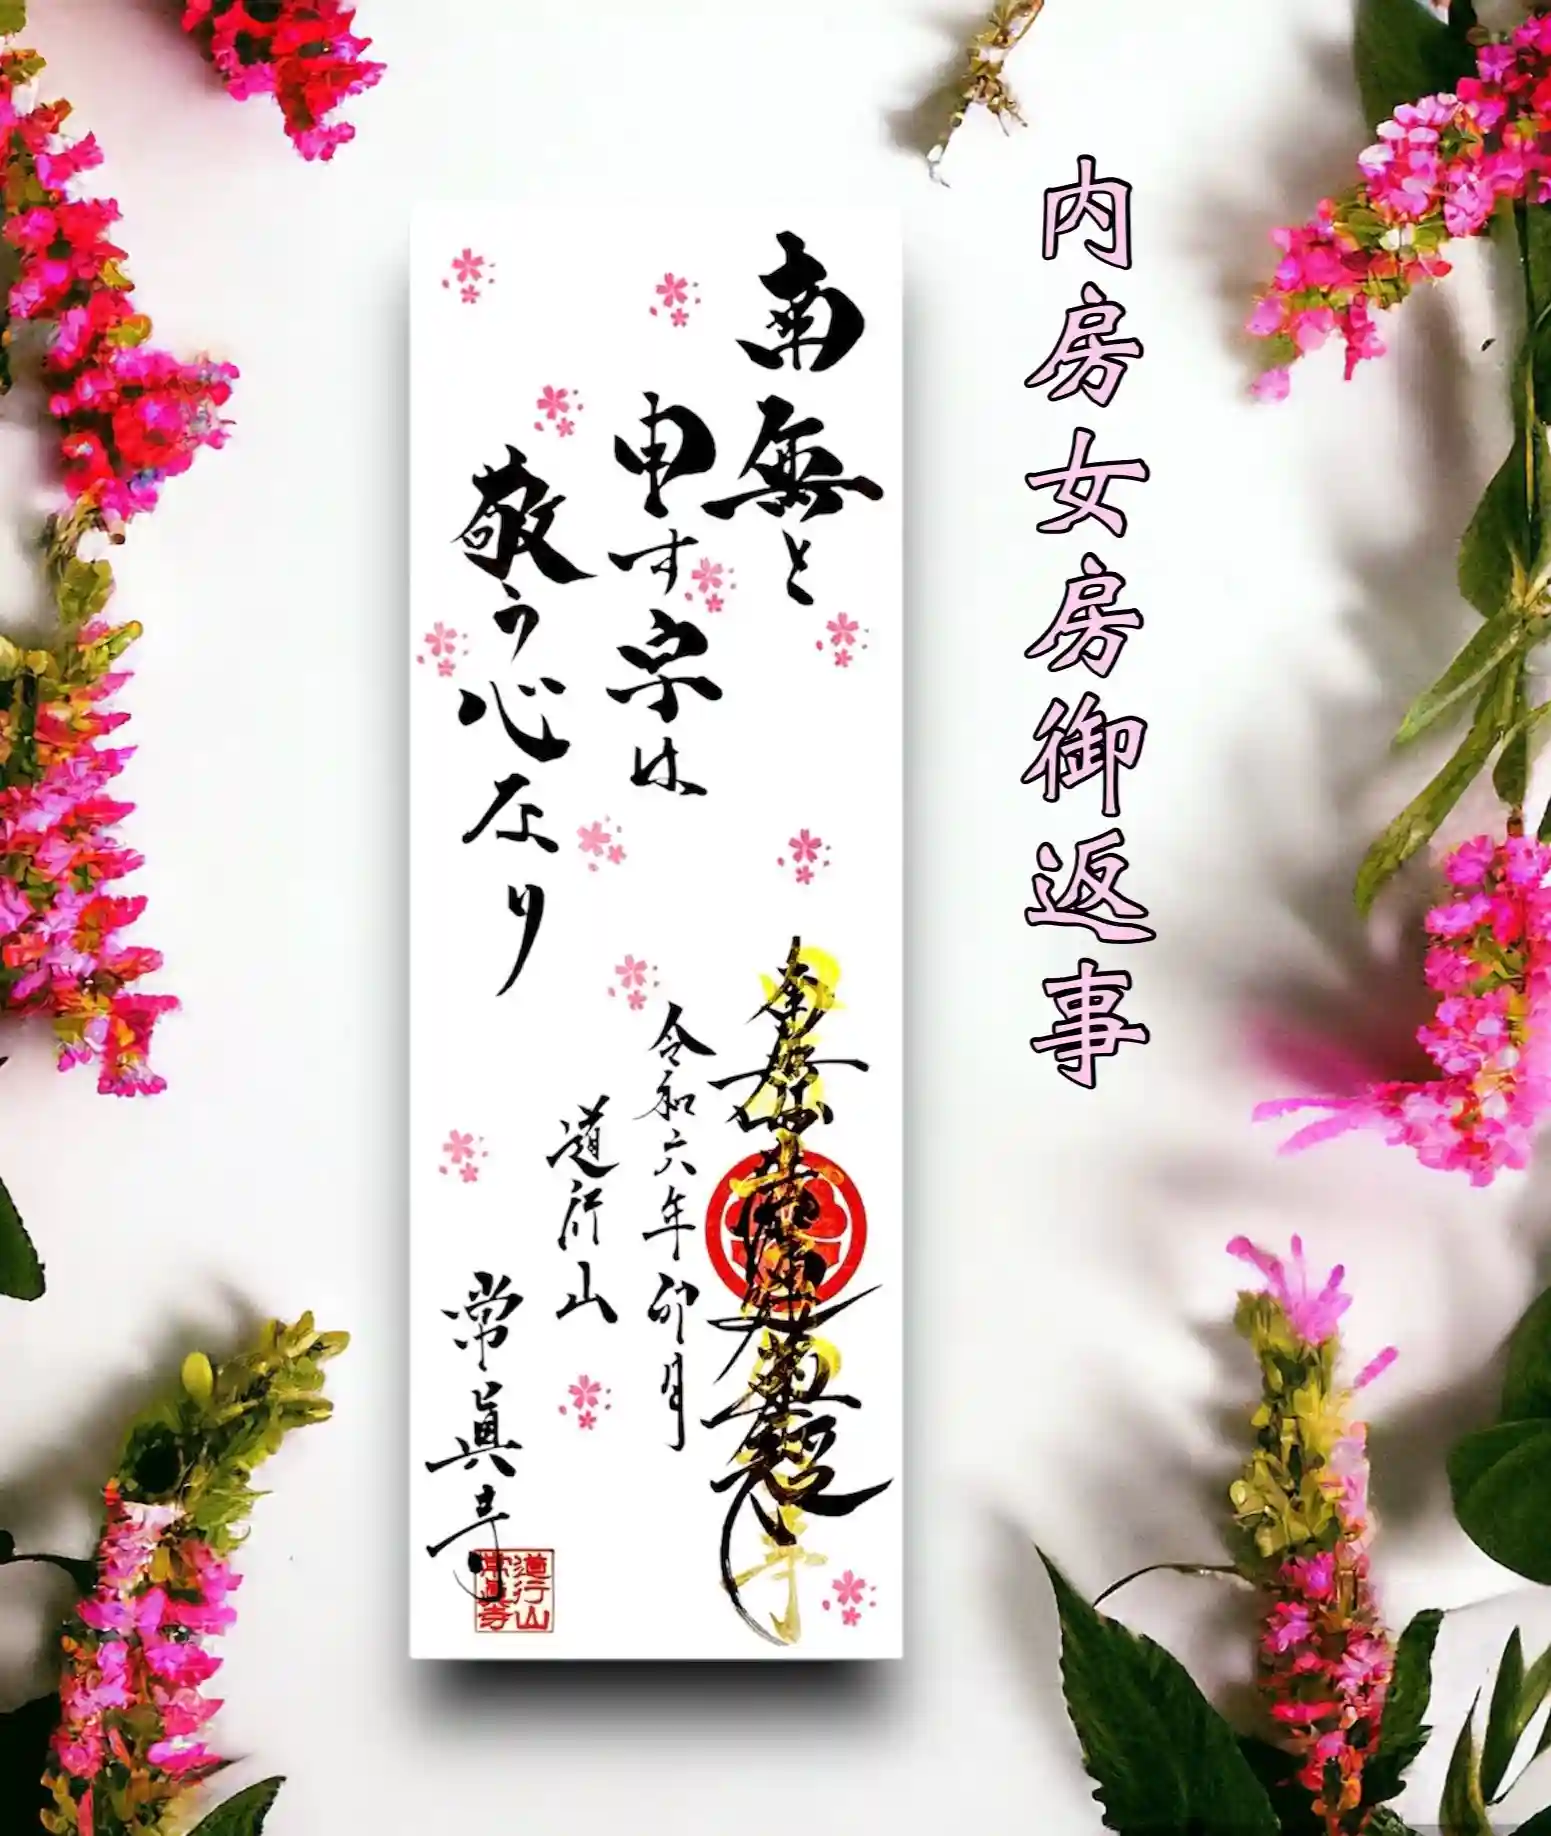 内房女房御返事
南無と
申す字は
敬う心なり
南無妙法蓮華経
令和六年卯月
道行山
常眞寺
道行山
常眞寺